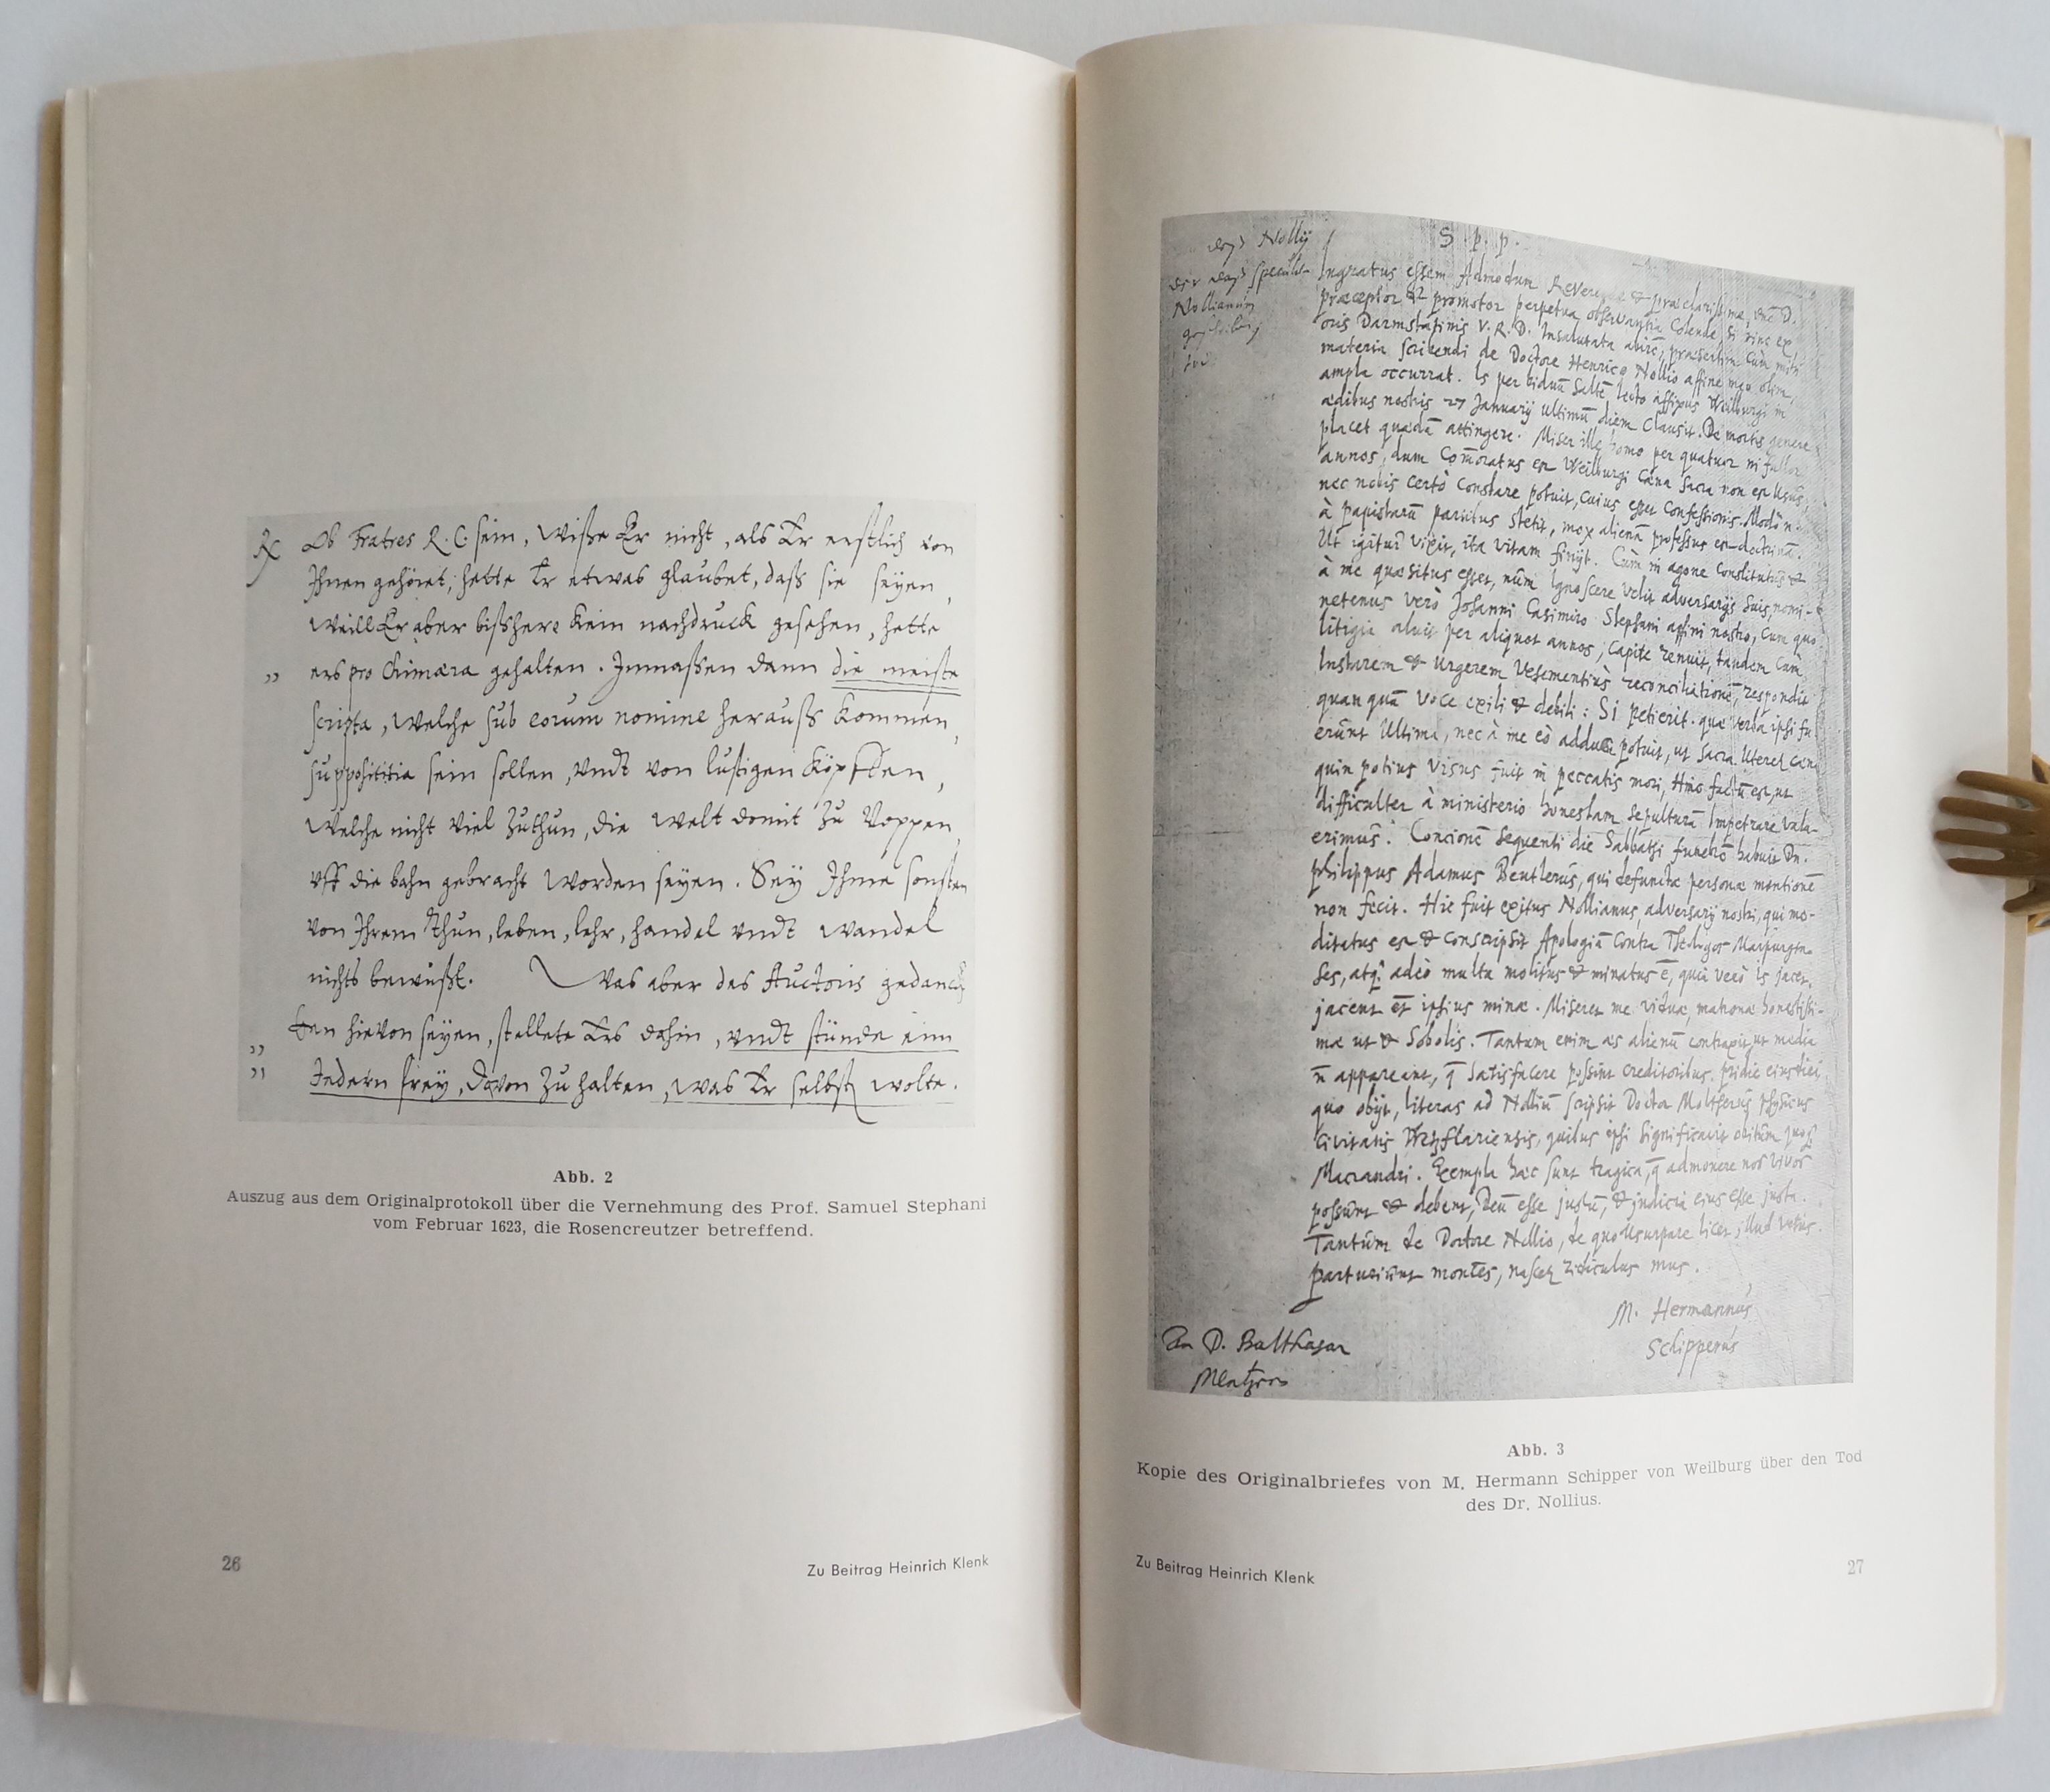 Rx Ob Fratres R. C. sein, wisse Er nicht, als Er erstlich von
Ihnen gehöret, hette Er etwas glaubet, daß sie seyen,
Weill Er aber bißhero kein nachdruck gesehen, hette
ers pro Chimæra gehalten. Inmaßen dann die meiste
scripta, welche sub eorum nomine herauß kommen,
supposititia sein sollen, undt von lustigen Köpffen,
welche nicht viel zuthun, die welt domit zu Voppen,
uff die bahn gebracht worden seyen. Sey Ihme sonsten
von Ihrem thun, leben, lehr, handel undt wandel
nichts bewußt. Was aber des Auctoris gedanck
ken hievon seyen, stellete Ers dahin, undt stünde eim
Jedern frey, davon zu halten, was Er selbst wolte.
Abb. 2
Auszug aus dem Originalprotokoll über die Vernehmung des Prof. Samuel Stephani
vom Februar 1623, die Rosencreutzer betreffend.
26
Zu Beitrag Heinrich Klenk
Nollij
S. p. p.
Ingratus essem Admodum & præclarissime,
præceptor & promotor perpetua observantia Colende, si
oris Darmstatinis V. R. D. Insalutata abire, præsertim Cum mihi
materia scribendi de Doctore Henrico Nollio affine meo olim,
ampla occurrat. Is per biduũ Saltẽ lecto affixus Weilburgi in
ædibus nostris 27 Januarij Ultimũ diem Clausit. De mortis genere
placet quædã attingere. Miser ille homo per quatuor ni fallor
annos, dum Com̃oratus est Weilburgi Cæna Sacra non est Usus,
nec nobis certò Constare potuit, Cuius esset Confessionis. Modò
à papistarũ partibus stetit, mox alienã professus est doctrinã.
Ut igitur vixit, ita vitam finijt. Cùm in agone Constitutus &
à me quæsitus esset, nùm Ignoscere velit adversarijs suis, nomi-
netenus verò Johanni Casimiro Stephani affini nostro, Cum quo
litigia aluit per aliquot annos, Capite renuit, tandem Cum
Instarem & Urgerem Vehementiùs reconciliationẽ, respondit
quanquã voce exili & debili: Si petierit. quæ verba ipsi fu
erunt Ultima, nec à me eò adduci potuit, ut Sacra Uteretur Cæn
quin potius Visus fuit in peccatis mori, Hinc factũ est, ut
difficulter à ministerio honestam Sepulturã Impetrare valu-
erimus. Concionẽ Sequenti die Sabbathi funebrẽ habuit Dn.
philippus Adamus Beutlerus, qui defunctæ personæ mentionẽ
non fecit. Hic fuit exitus Nollianus, adversarij nostri, qui me-
ditatus est & conscripsit Apologiã Contra Theologos Marpurgen
ses, atq; adeò multa molitus & minatus ẽ, quia verò is jacet,
jacent et ipsius minæ. Miseret me viduæ, matronæ honestissi-
mæ ut & Sobolis. Tantum enim æs alienũ contraxit, ut media
ñ appareant, q̃ satisfacere possint Creditoribus. pridie eius diei,
quo obijt, literas ad Nolliũ scripsit Doctor Moltherus physicus
Civitatis Wetzflariensis, quibus ipsi significavit obitum
Macrandri. Exempla hæc sunt tragica, q̃ admonere nos vivos
possunt & debent, Deũ esse justũ, & judicia eius esse justa.
Tantùm de Doctore Nollio, de quo Usurpare licet illud vetus.
parturiunt montes, nascetur ridiculus mus.
M. Hermannus
Schipperus
An D. Balthasar
Mentzern
Abb. 3
Kopie des Originalbriefes von M. Hermann Schipper von Weilburg über den Tod
des Dr. Nollius.
Zu Beitrag Heinrich Klenk
27